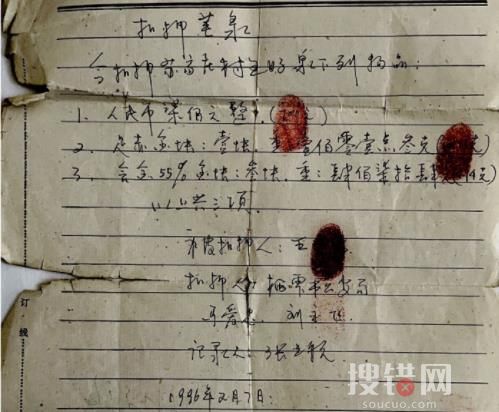 扣押笔录
今扣押蔡高庄村王好泉下列物品:
1. 人民币柒佰元整。
2. 足赤金块:壹块,重:壹佰零壹点叁克
3. 含金55%金块:叁块,重:肆佰柒拾肆
以上共三项。
被扣押人:王
扣押人:栖霞
马爱忠 刘
记录人:张
1996年2月7日.
订
线
搜错网
soucuo.com